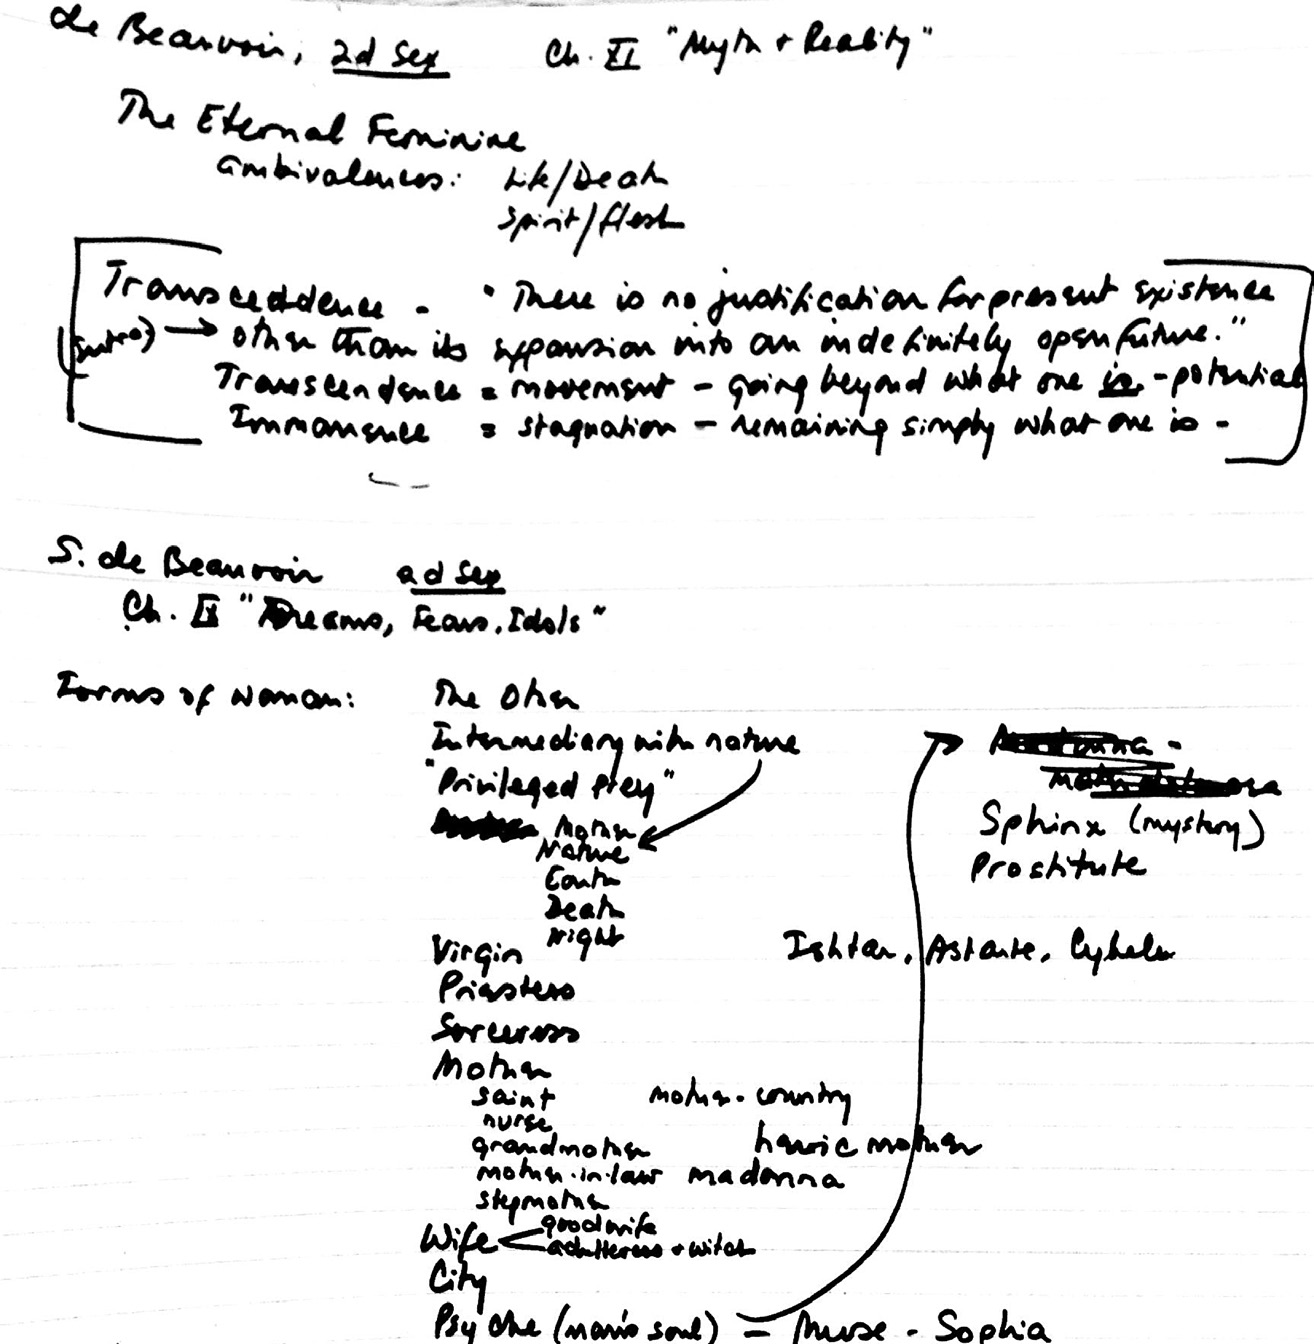 de Beauvoir, 2d Sex Ch. XI "Myth + Reality"
The Eternal Feminine
ambivalences: Life/Death
Spirit/flesh
Transcendence - "There is no justification for present existence
(intro) → other than its expansion into an indefinitely open future."
Transcendence = movement - going beyond what one is - potential
Immanence = stagnation - remaining simply what one is -
S. de Beauvoir 2d Sex
Ch. IX "Dreams, Fears, Idols"
Forms of Woman: The Other
Intermediary with nature
"Privileged Prey"
Mother
Nature
Earth
Death
Night
Sphinx (mystery)
Prostitute
Virgin Ishtar, Astarte, Cybele
Priestess
Sorceress
Mother
saint mother-country
nurse
grandmother heroic mother
mother-in-law madonna
stepmother
Wife < good wife
adulteress + witch
City
Psyche (man's soul) - Muse - Sophia